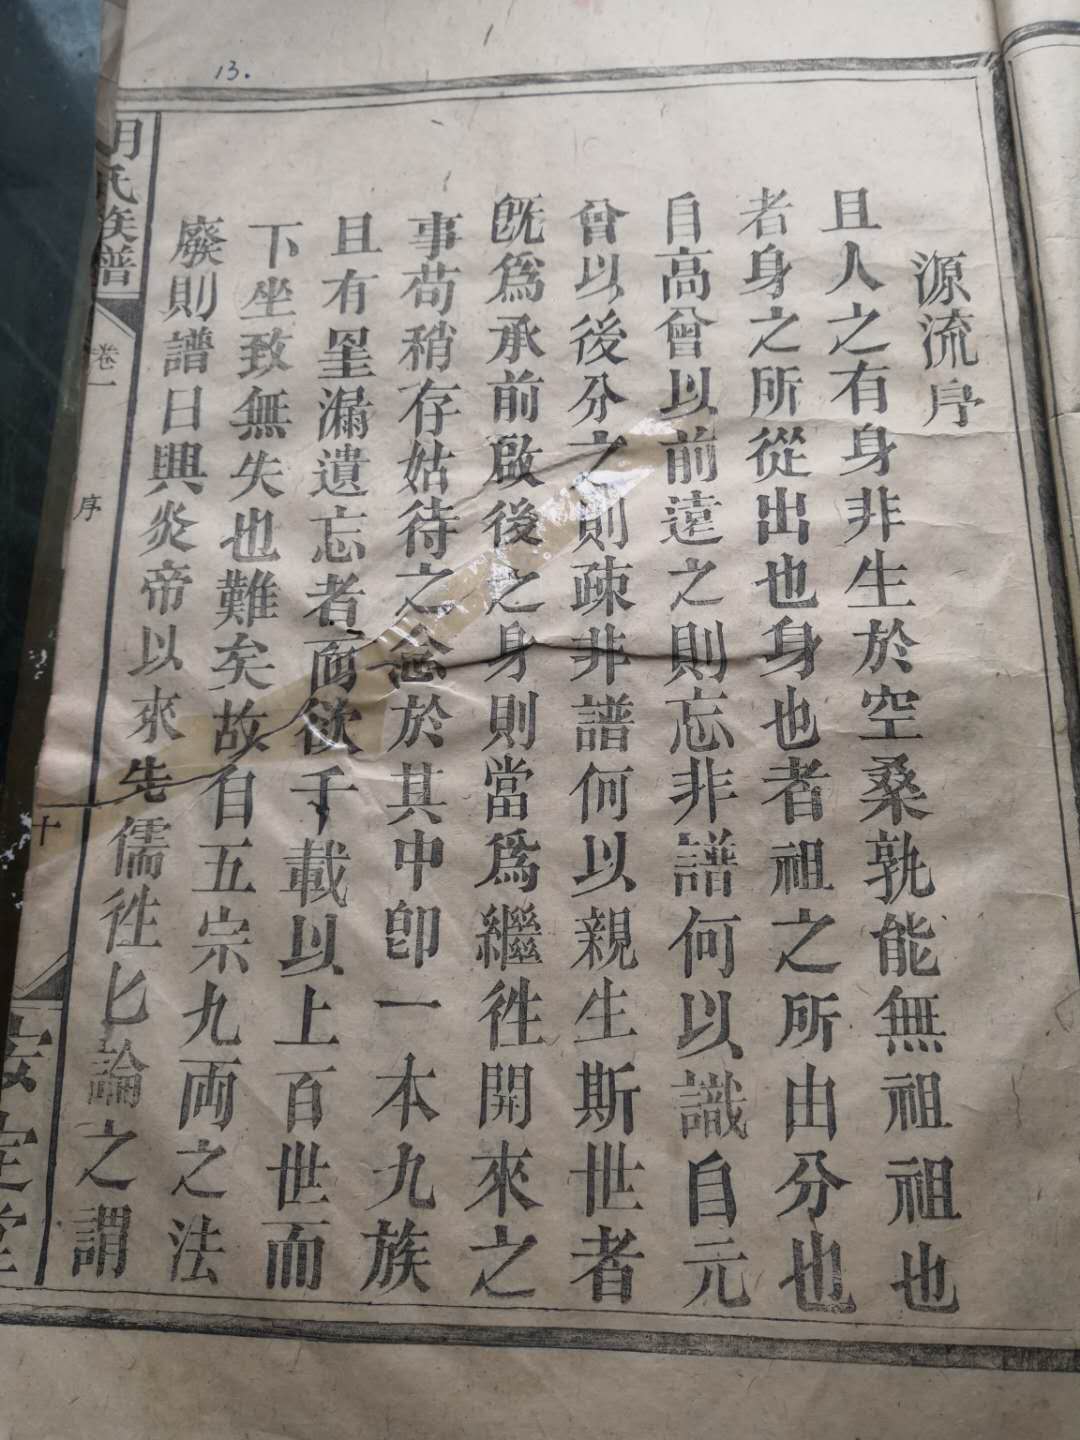 13.
源流序
且人之有身非生於空桑孰能無祖祖也
者身之所從出也身也者祖之所由分也
自高曾以前遠之則忘非譜何以識自元
曾以後分之則疎非譜何以親生斯世者
旣爲承前啟後之身則當爲繼徃開來之
事苟稍存姑待之念於其中卽一本九族
且有罣漏遺忘者而欲千載以上百世而
下坐致無失也難矣故自五宗九両之法
廢則譜日興炎帝以來先儒徃匕論之謂
氏族譜
卷一
序
十
安定堂